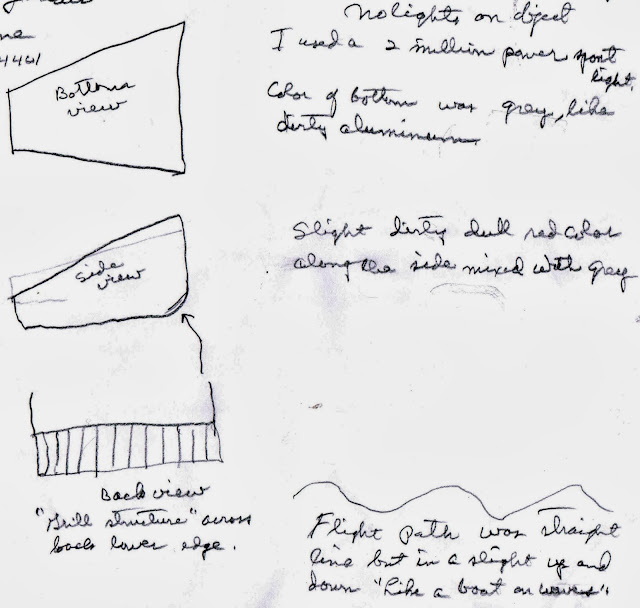 No lights on object
I used a 2 million power spot
light.
Color of bottom was grey, like
dirty aluminum
4461
Bottom
view
Slight dirty dull red color
along the side mixed with grey
Side
view
Back view
"Grill structure" across
back lower edge.
Flight path was straight
line but in a slight up and
down "Like a boat on waves".